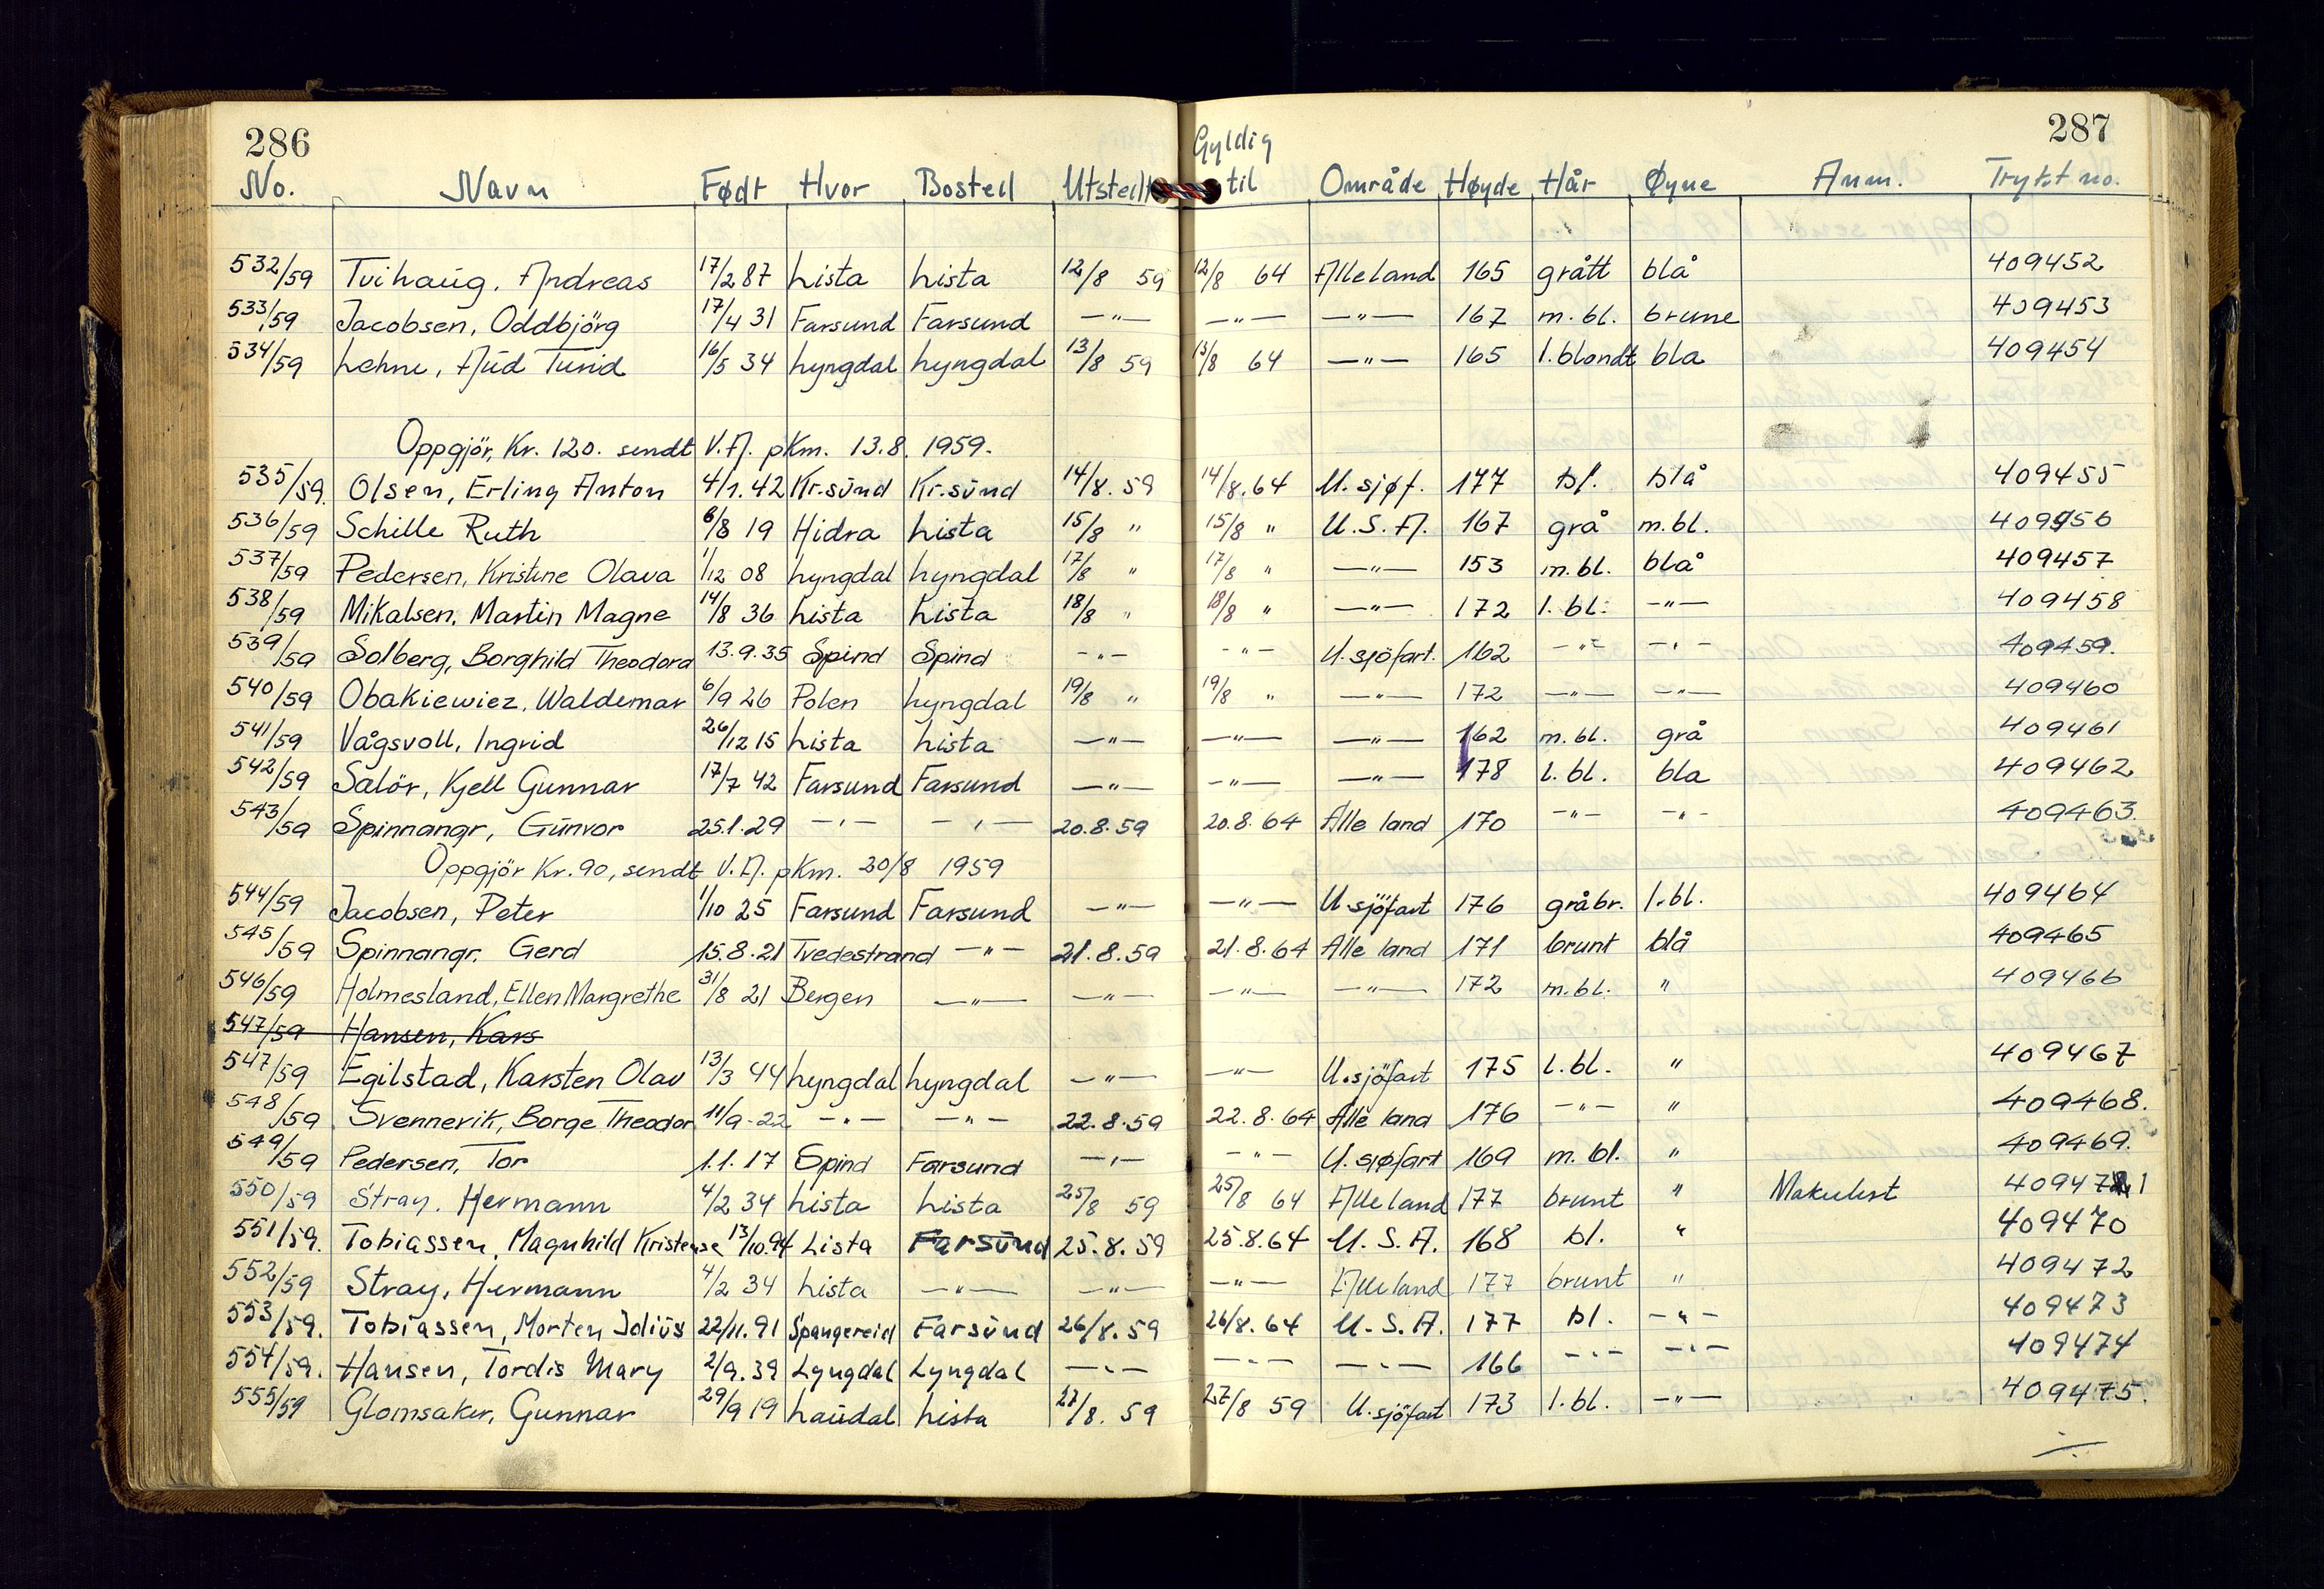 286
287
No. Navn Født Hvor Bosted Utstedt Gyldig til Område Høyde Hår Øyne Anm. Trykt no.
532/59 Tvihaug, Andreas 17/2 87 Lista Lista 12/8 59 12/8 64 Alle land 165 grått blå 409452
533/59 Jacobsen, Oddbjörg 17/4 31 Farsund Farsund —"— —"— —"— 167 m. bl. brune 409453
534/59 Lehne, Aud Turid 16/5 34 Lyngdal Lyngdal 13/8 59 13/8 64 —"— 165 l. blondt bla 409454
Oppgjör, Kr. 120. sendt V.A. pKm. 13.8. 1959.
535/59. Olsen, Erling Anton 4/1. 42 Kr.sünd Kr.sünd 14/8. 59 14/8. 64 U. sjøf. 177 bl. blå 409455
536/59 Schille Ruth 6/8 19 Hidra Lista 15/8 " 15/8 " U.S.A. 167 grå m. bl. 409456
537/59 Pedersen, Kristine Olava 1/12 08 Lyngdal Lyngdal 17/8 " 17/8 " —"— 153 m. bl. blå 409457
538/59 Mikalsen, Martin Magne 14/8 36 Lista Lista 18/8 " 18/8 " —"— 172 l. bl. —"— 409458
539/59 Solberg, Borghild Theodora 13.9.35 Spind Spind —"— —"— U. sjöfart. 162 —"— —"— 409459.
540/59 Obakiewiez, Waldemar 6/9 26 Polen Lyngdal 19/8 " 19/8 " —"— 172 —"— —"— 409460
541/59 Vågsvoll, Ingrid 26/12 15 Lista Lista —"— —"— —"— 162 m. bl. grå 409461
542/59 Salör, Kjell Gunnar 17/7 42 Farsund Farsund —"— —"— —"— 178 l. bl. bla 409462
543/59 Spinnangr, Günvor 25.1.29 —"— —"— 20.8.59 20.8.64 Alle land 170 —"— —"— 409463.
Oppgjör Kr. 90, sendt V.A. pKm. 20/8 1959
544/59 Jacobsen, Peter 1/10 25 Farsund Farsund —"— —"— U. sjöfart 176 gråbr. l. bl. 409464
545/59 Spinnangr, Gerd 15.8.21 Tvedestrand —"— 21.8.59 21.8.64 Alle land 171 brunt blå 409465
546/59 Holmesland, Ellen Margrethe 31/8 21 Bergen —"— —"— —"— —"— 172 m. bl. " 409466
547/59 Hansen, Kars
547/59 Egilstad, Karsten Olav 13/3 44 Lyngdal Lyngdal —"— —"— U. sjöfart 175 l. bl. " 409467
548/59 Svennevik, Borge Theodor 11/9-22 —"— —"— 22.8.59 22.8.64 Alle land 176 —"— " 409468.
549/59 Pedersen, Tor 1.1.17 Spind Farsund —"— —"— U. sjøfart 169 m. bl. " 409469.
550/59 Stray, Hermann 4/2 34 Lista Lista 25/8 59 25/8 64 Alle land 177 brunt " Makulert 409471
551/59. Tobiassen, Magnhild Kristense 13/10.94 Lista Farsünd 25.8.59 25.8.64 U.S.A. 168 bl. " 409470
552/59 Stray, Hermann 4/2 34 Lista —"— —"— —"— Alle land 177 brunt " 409472
553/59. Tobiassen, Morten Idlüs 22/11.91 Spangereid Farsünd 26/8. 59 26/8. 64 U.S.A. 177 bl. —"— 409473
554/59. Hansen, Tordis Mary 2/9. 39 Lyngdal Lyngdal —"— —"— —"— 166 —"— —"— 409474
555/59 Glomsaker, Gunnar 29/9 19 Laudal Lista 27/8. 59 27/8 59 U. sjöfart 173 l. bl. —"— 409475.